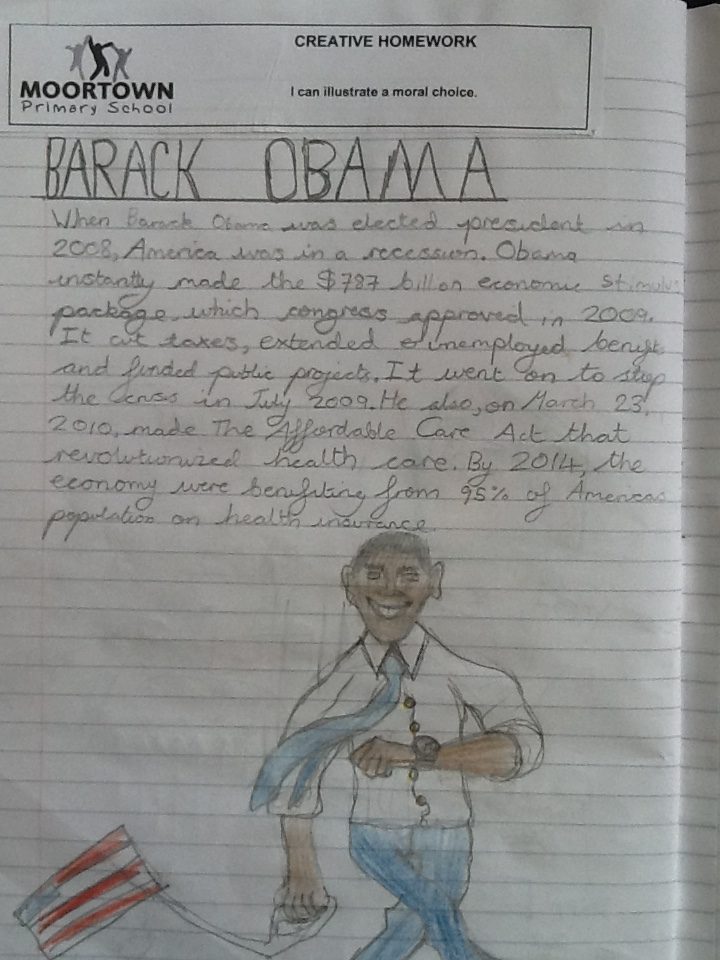 CREATIVE HOMEWORK
MOORTOWN
Primary School
I can illustrate a moral choice.
BARACK OBAMA
When Barack Obama was elected president in
2008, America was in a recession. Obama
instantly made the $787 billon economic stimulus
package, which congress approved in 2009.
It cut taxes, extended unemployed
and funded public projects. It went on to stop
the in July 2009. He also, on March 23,
2010, made The Affordable Care Act that
health care. By 2014, the
economy were benefiting from 95% of
population on health insurance